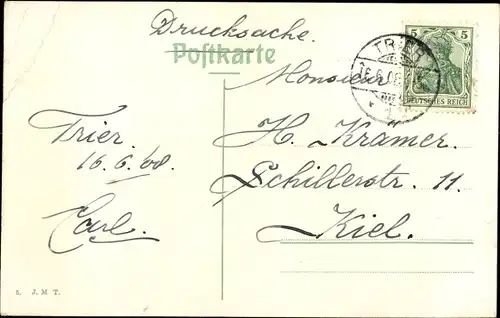 Drucksache.
Postkarte
5 5
DEUTSCHES REICH
TRIER
16.6.08
Monsieur
H. Kramer.
Schillerstr. 11.
Kiel.
Trier.
16.6.08
Carl.
5. J. M. T.